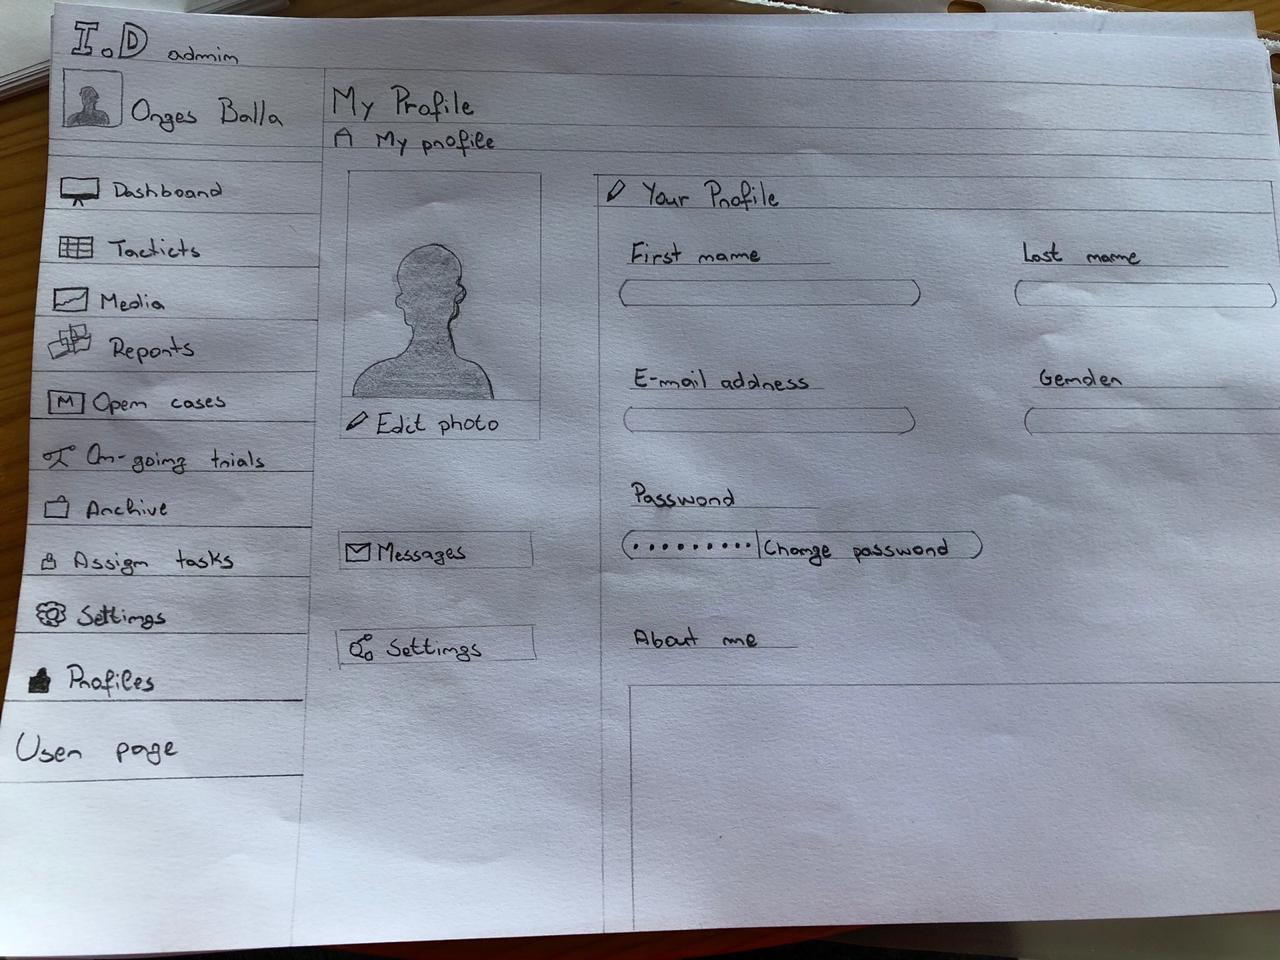 I.D admin
Onges Balla
Dashboard
Tacticts
Media
Reports
M Open cases
On-going trials
Archive
Assign tasks
Settings
Profiles
User page
My Profile
My profile
Edit photo
Messages
Settings
Your Profile
First name
Last name
E-mail address
Gender
Password
Change password
About me